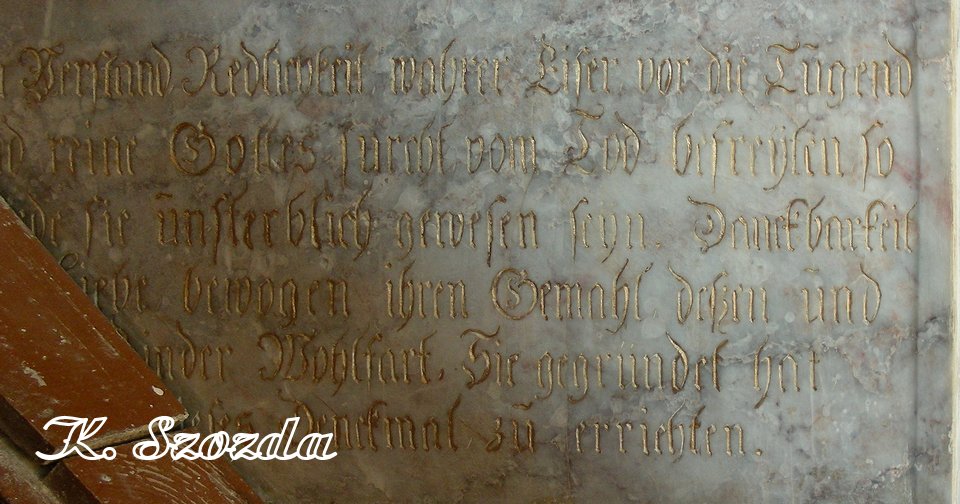 Verstand, Redlichkeit, wahrer Eifer vor die Tügend
reine Gottes furcht vom Tod befreyten, so
sie ünsterblich gewesen seyn. Danckbarkeit
bewogen ihren Gemahl, deßen ünd
Kinder Wohlfart, Sie gegründet hat
dieses Denckmal zü errichten.
K. Szozda